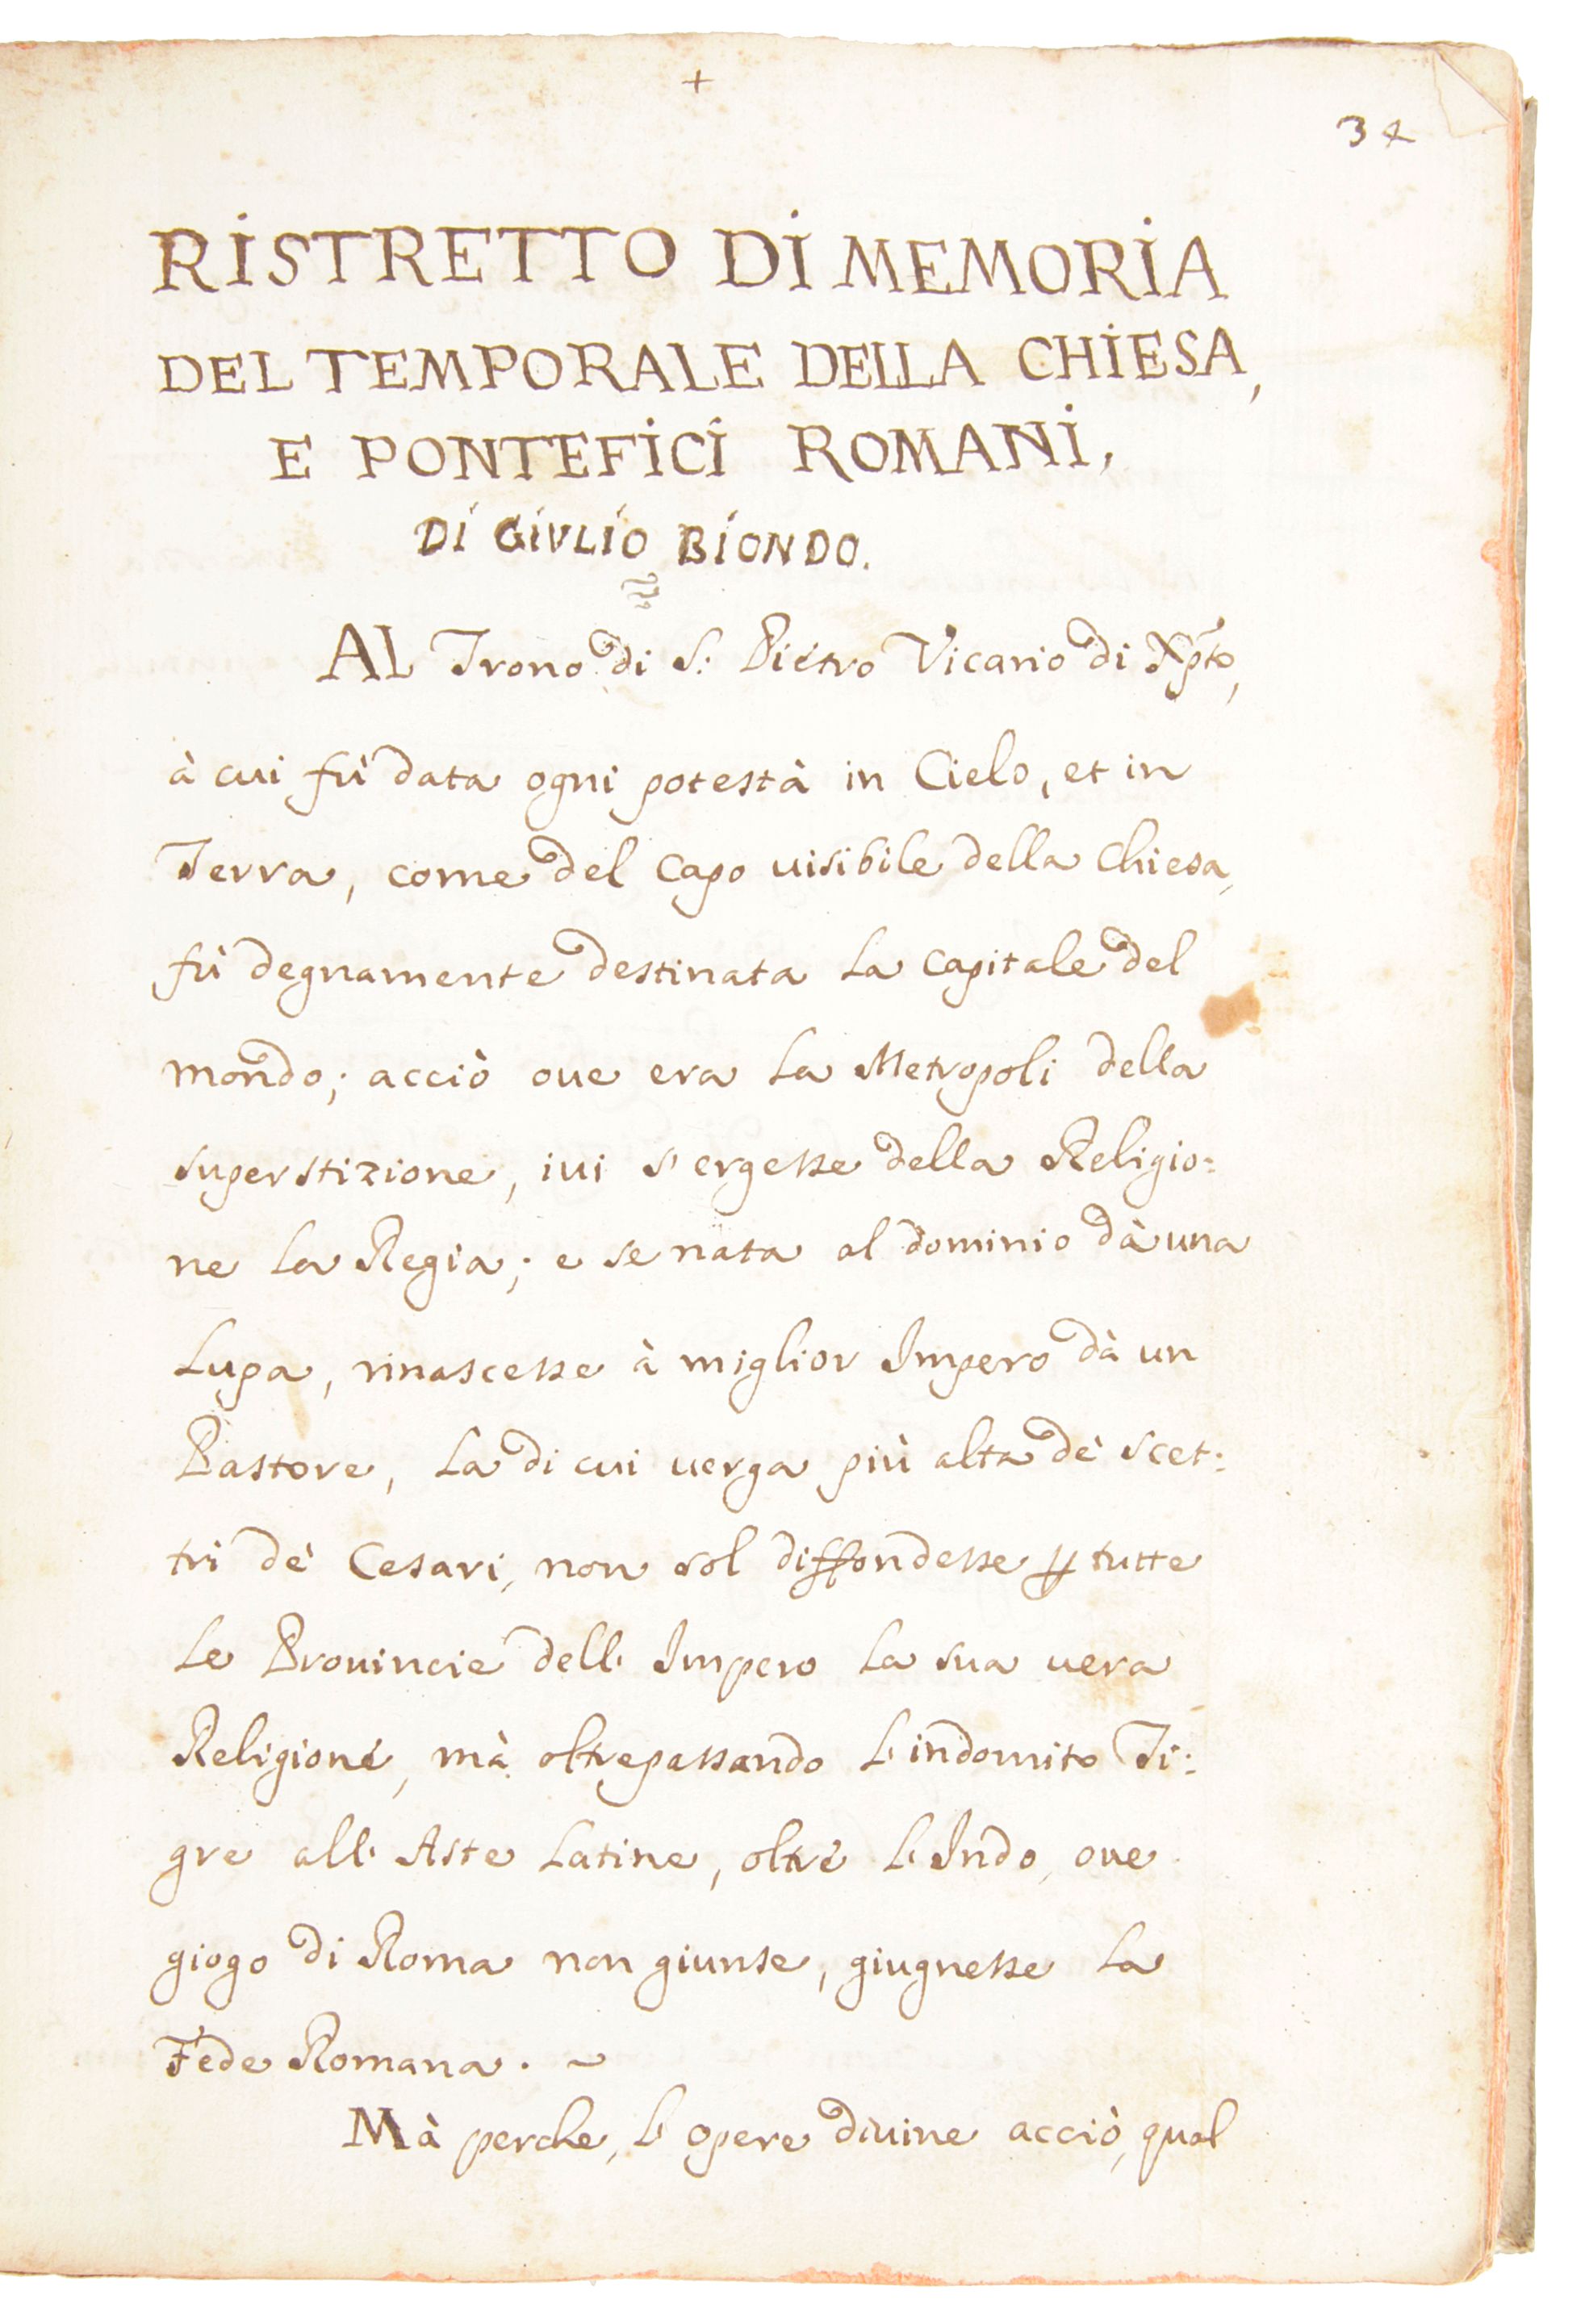 +
34
RISTRETTO DI MEMORIA
DEL TEMPORALE DELLA CHIESA,
E PONTEFICI ROMANI,
DI GIVLIO BIONDO.
AL Trono di S. Pietro Vicario di Xp̃to,
à cui fù data ogni potestà in Cielo, et in
Terra, come del Capo uisibile della Chiesa,
fù degnamente destinata la Capitale del
mondo; acciò oue era la Metropoli della
superstizione, iui s'ergesse della Religio:
ne la Regia; e se nata al dominio dà una
Lupa, rinascesse à miglior Impero dà un
Pastore, la di cui uerga più alta de' scet:
tri de' Cesari, non sol diffondesse ꝑ tutte
le Prouincie dell' Impero la sua uera
Religione, mà oltrepassando l'indomito Ti:
gre all' Aste Latine, oltre l'Indo, oue
giogo di Roma non giunse, giugnesse la
Fede Romana. ~
Mà perche, l' opere diuine acciò, qual